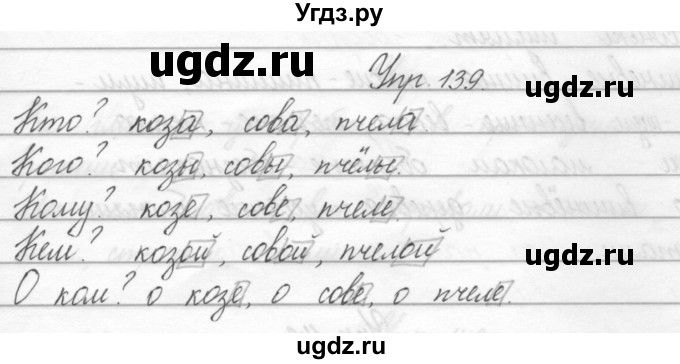 Угдз.ру
ugdz.ru ugdz.ru
Упр. 139
Кто? коза, сова, пчела.
Кого? козы, совы, пчёлы.
Кому? козе, сове, пчеле.
Кем? козой, совой, пчелой
О ком? о козе, о сове, о пчеле.
ugdz.ru ugdz.ru
ugdz.ru